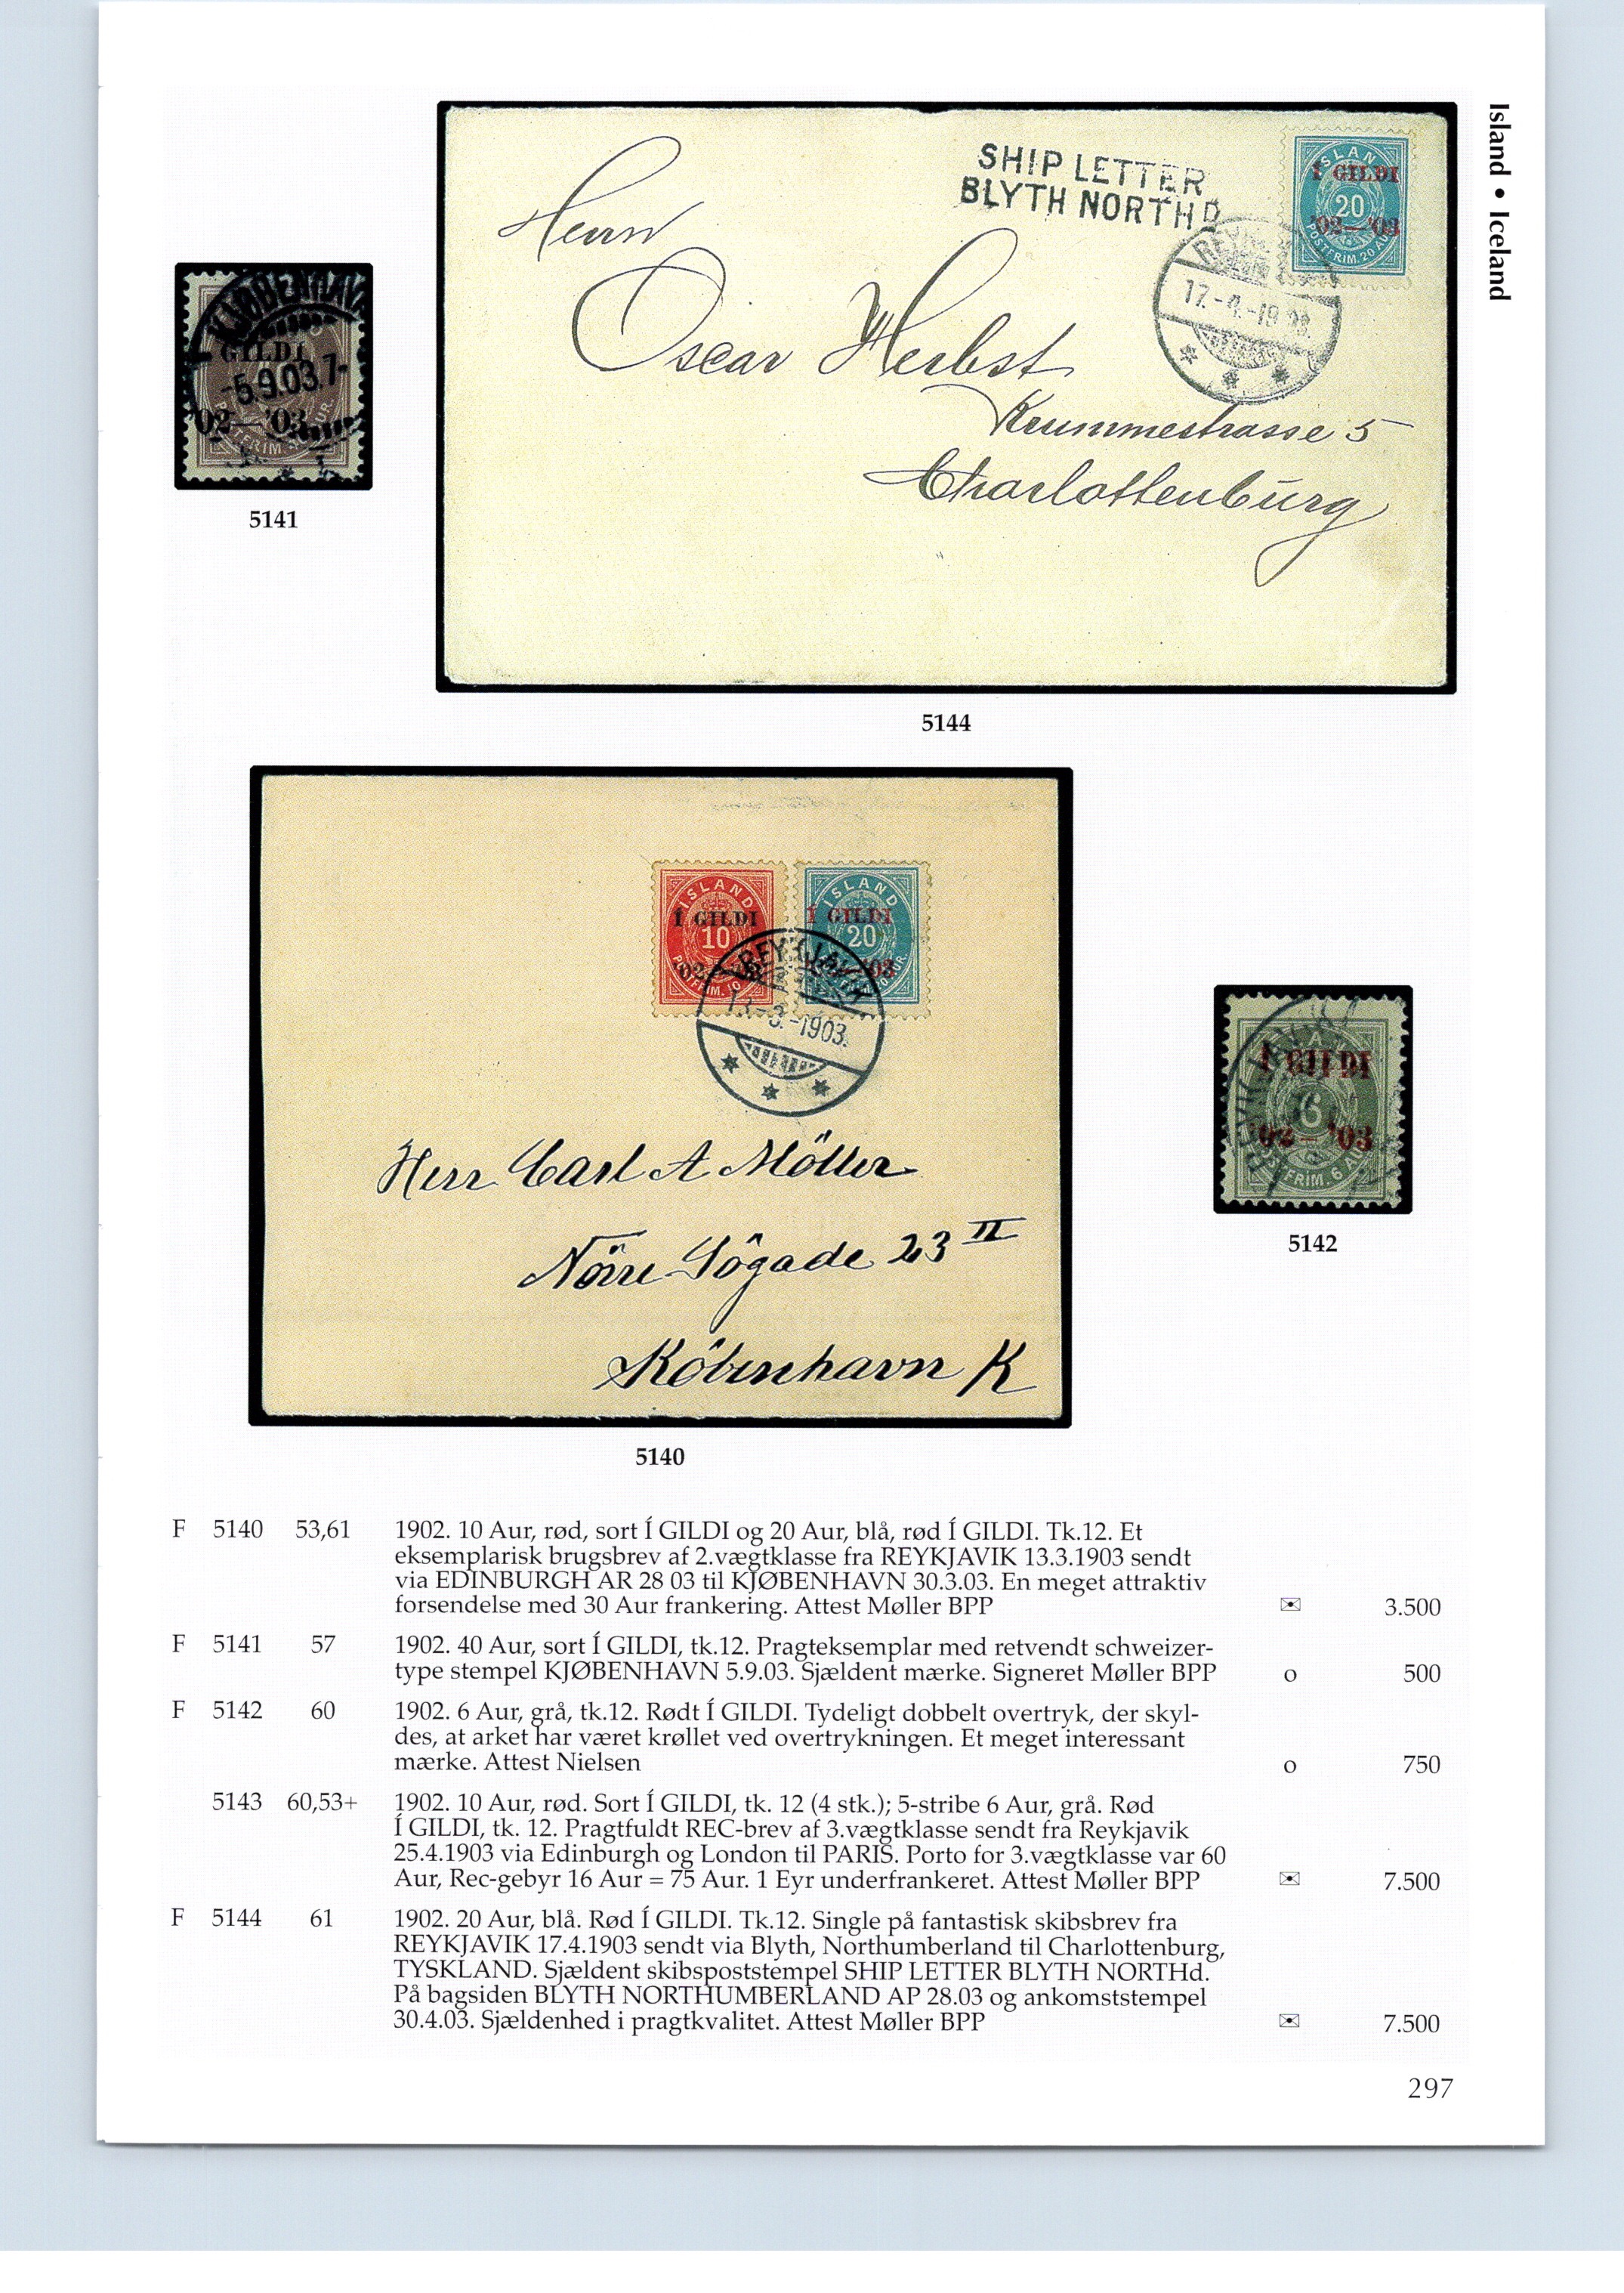 Island • Iceland
SHIP LETTER
BLYTH NORTHD
ISLAND
Í GILDI
20
'02—'03
POSTFRIM. 20 AUR.
REYKJAVIK
17.-4.-1903.
Herrn
Oscar Herbst
Krummestrasse 5
Charlottenburg
KJØBENHAVN
GILDI
-5.9.03.7-
'02—'03
5141
5144
ISLAND
Í GILDI
10
'02—'03
POSTFRIM. 10
ISLAND
Í GILDI
20
'03
REYKJAVIK
13.-3.-1903.
Herr Carl A Möller
Nörre Sôgade 23 II
Köbenhavn K
Í GILDI
6
'02—'03
POSTFRIM. 6 AUR
5142
5140
F 5140 53,61 1902. 10 Aur, rød, sort Í GILDI og 20 Aur, blå, rød Í GILDI. Tk.12. Et
eksemplarisk brugsbrev af 2.vægtklasse fra REYKJAVIK 13.3.1903 sendt
via EDINBURGH AR 28 03 til KJØBENHAVN 30.3.03. En meget attraktiv
forsendelse med 30 Aur frankering. Attest Møller BPP ✉ 3.500
F 5141 57 1902. 40 Aur, sort Í GILDI, tk.12. Pragteksemplar med retvendt schweizer-
type stempel KJØBENHAVN 5.9.03. Sjældent mærke. Signeret Møller BPP o 500
F 5142 60 1902. 6 Aur, grå, tk.12. Rødt Í GILDI. Tydeligt dobbelt overtryk, der skyl-
des, at arket har været krøllet ved overtrykningen. Et meget interessant
mærke. Attest Nielsen o 750
5143 60,53+ 1902. 10 Aur, rød. Sort Í GILDI, tk. 12 (4 stk.); 5-stribe 6 Aur, grå. Rød
Í GILDI, tk. 12. Pragtfuldt REC-brev af 3.vægtklasse sendt fra Reykjavik
25.4.1903 via Edinburgh og London til PARIS. Porto for 3.vægtklasse var 60
Aur, Rec-gebyr 16 Aur = 75 Aur. 1 Eyr underfrankeret. Attest Møller BPP ✉ 7.500
F 5144 61 1902. 20 Aur, blå. Rød Í GILDI. Tk.12. Single på fantastisk skibsbrev fra
REYKJAVIK 17.4.1903 sendt via Blyth, Northumberland til Charlottenburg,
TYSKLAND. Sjældent skibspoststempel SHIP LETTER BLYTH NORTHd.
På bagsiden BLYTH NORTHUMBERLAND AP 28.03 og ankomststempel
30.4.03. Sjældenhed i pragtkvalitet. Attest Møller BPP ✉ 7.500
297